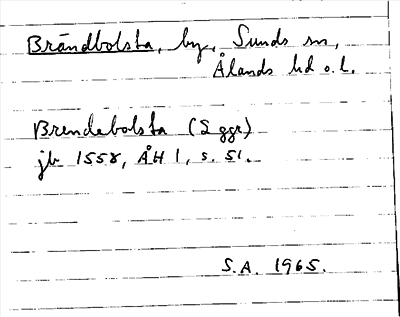 Brändbolsta, by, Sunds sn,
Ålands hd o. L.
Brendebolsta (2 ggr)
jb 1558, ÅH 1, s. 51.
S.A. 1965.